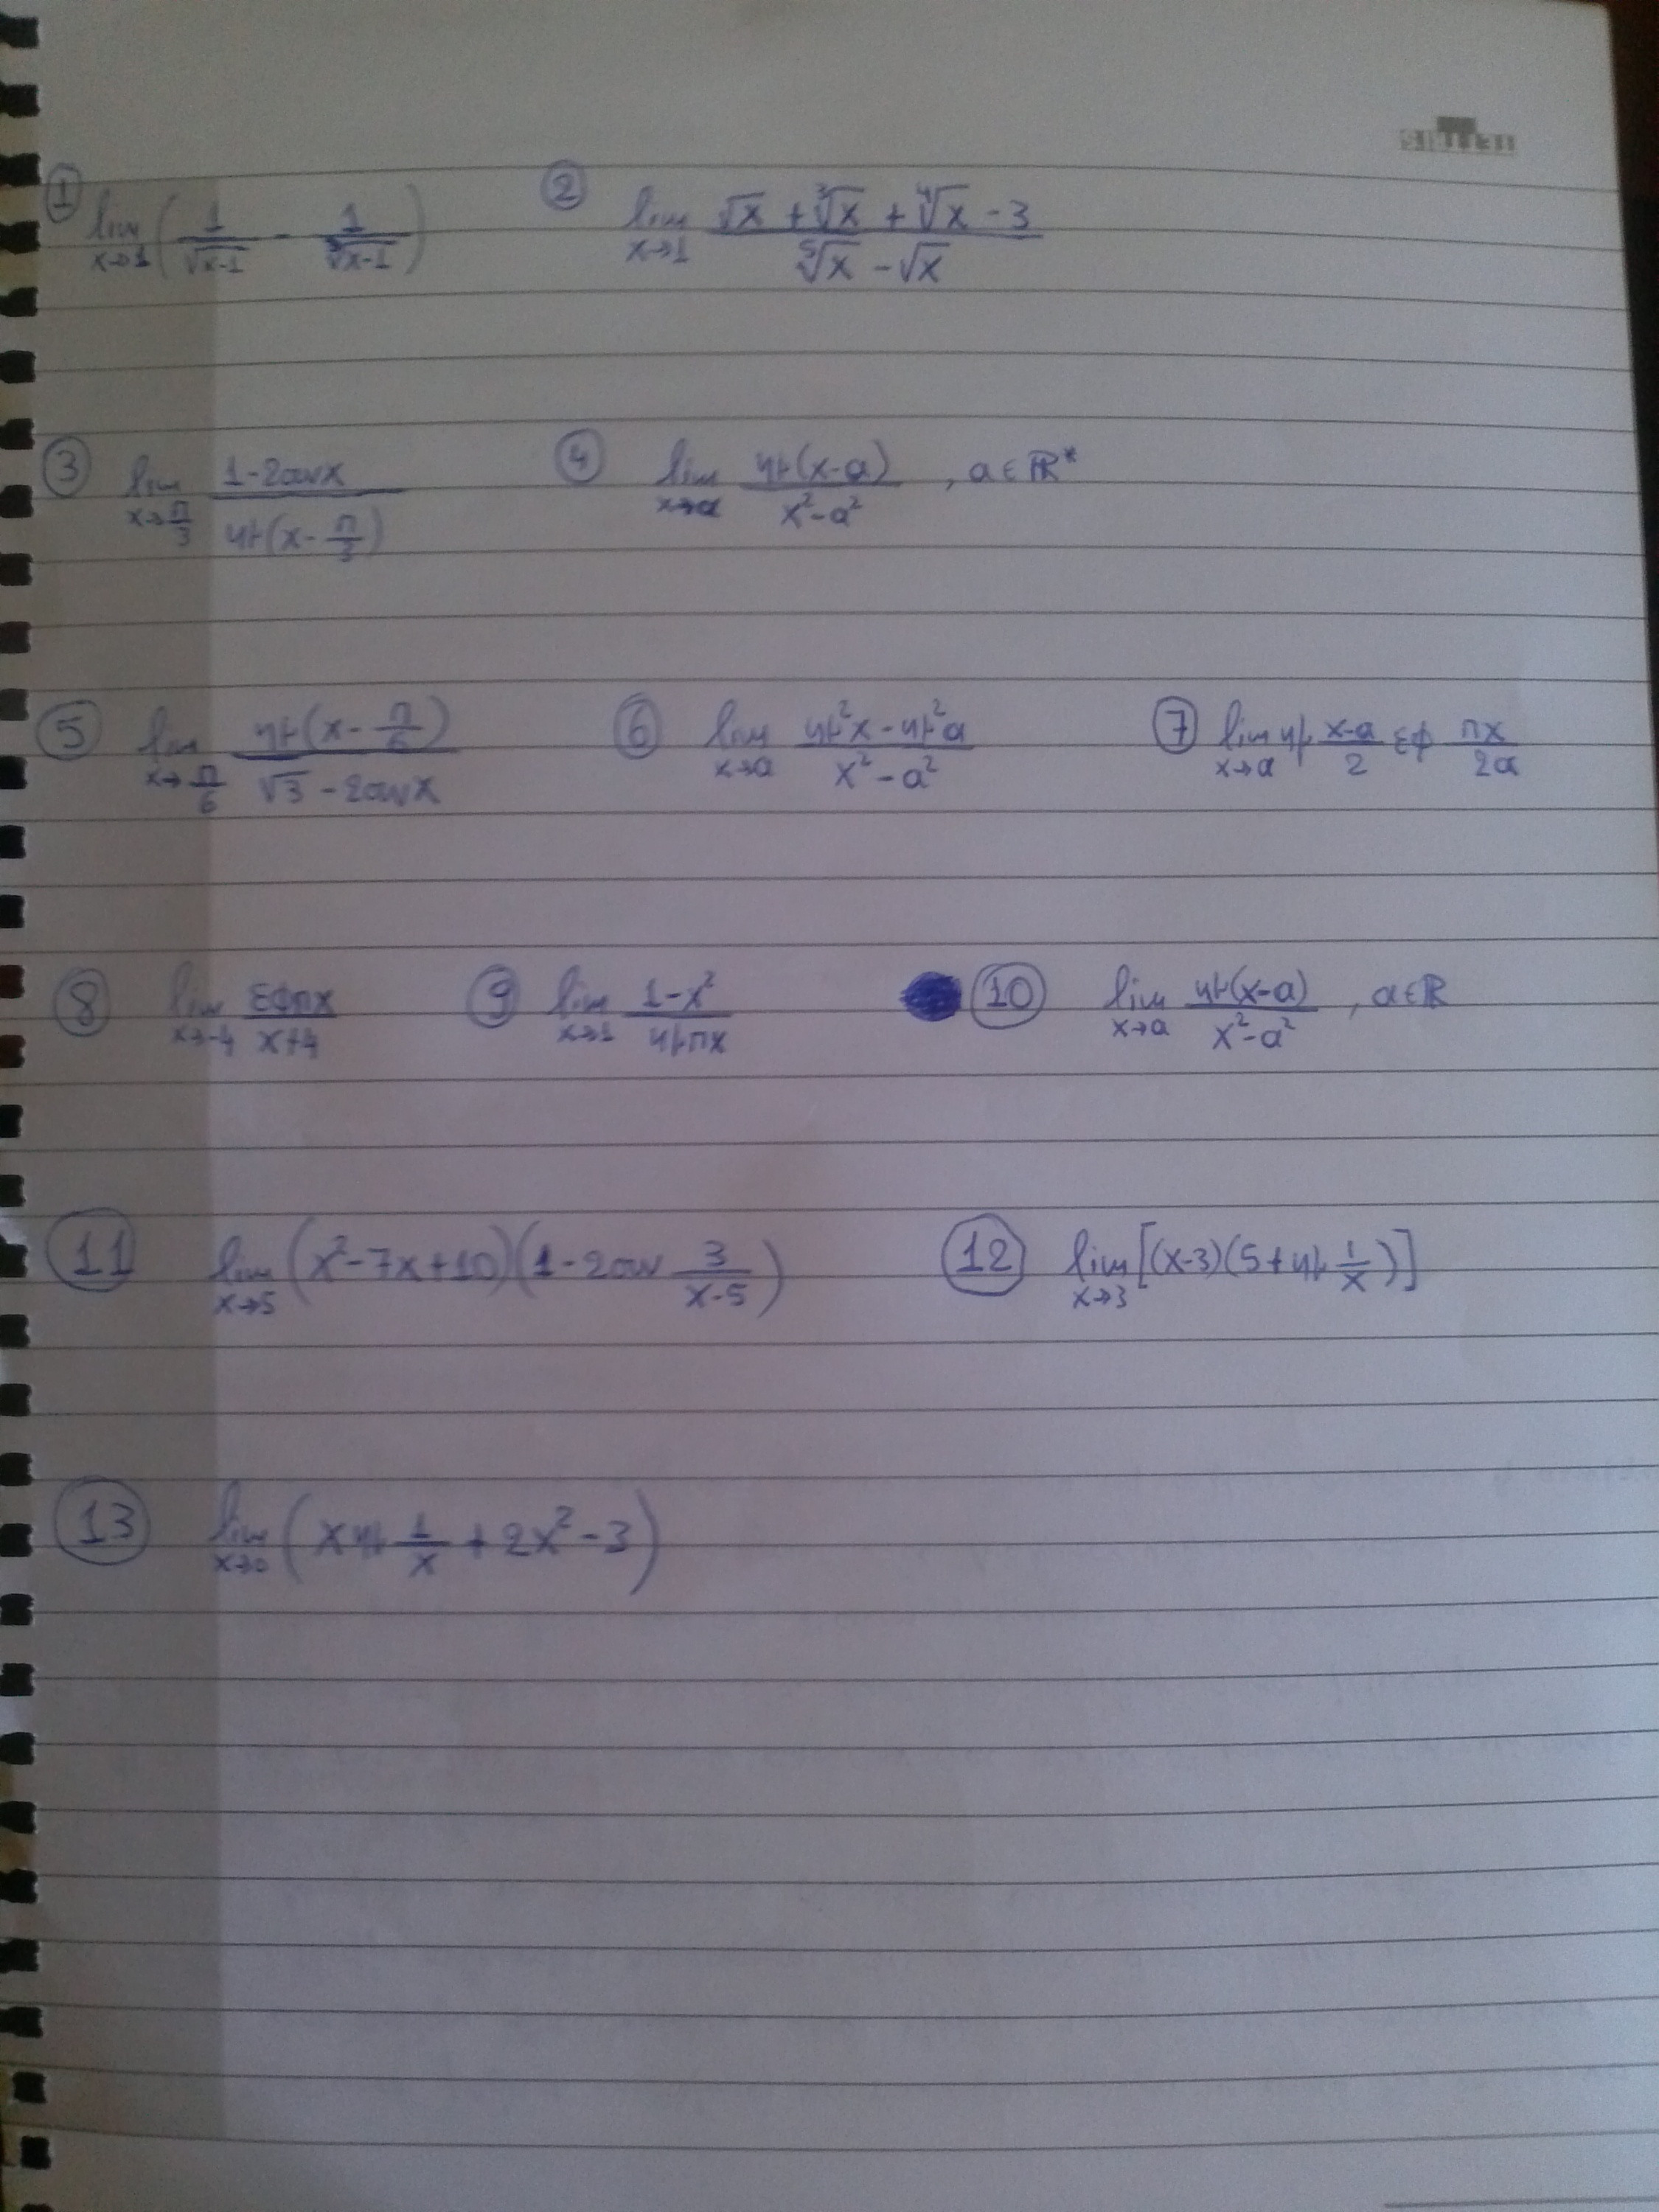 ① lim x→1 (1/√(x-1) - 1/∛(x-1)) ② lim x→1 (√x + ∛x + ∜x - 3)/(⁵√x - √x)
③ lim x→π/3 (1-2συνx)/(ημ(x-π/3)) ④ lim x→α ημ(x-α)/(x²-α²) , α∈ℝ*
⑤ lim x→π/6 ημ(x-π/6)/(√3-2συνx) ⑥ lim x→α (ημ²x-ημ²α)/(x²-α²) ⑦ lim x→α ημ (x-α)/2 εφ πx/2α
⑧ lim x→-4 εφπx/(x+4) ⑨ lim x→1 (1-x²)/ημπx ⑩ lim x→α ημ(x-α)/(x²-α²) , α∈ℝ
⑪ lim x→5 (x²-7x+10)(1-2συν 3/(x-5)) ⑫ lim x→3 [(x-3)(5+ημ 1/x)]
⑬ lim x→0 (xημ 1/x + 2x²-3)